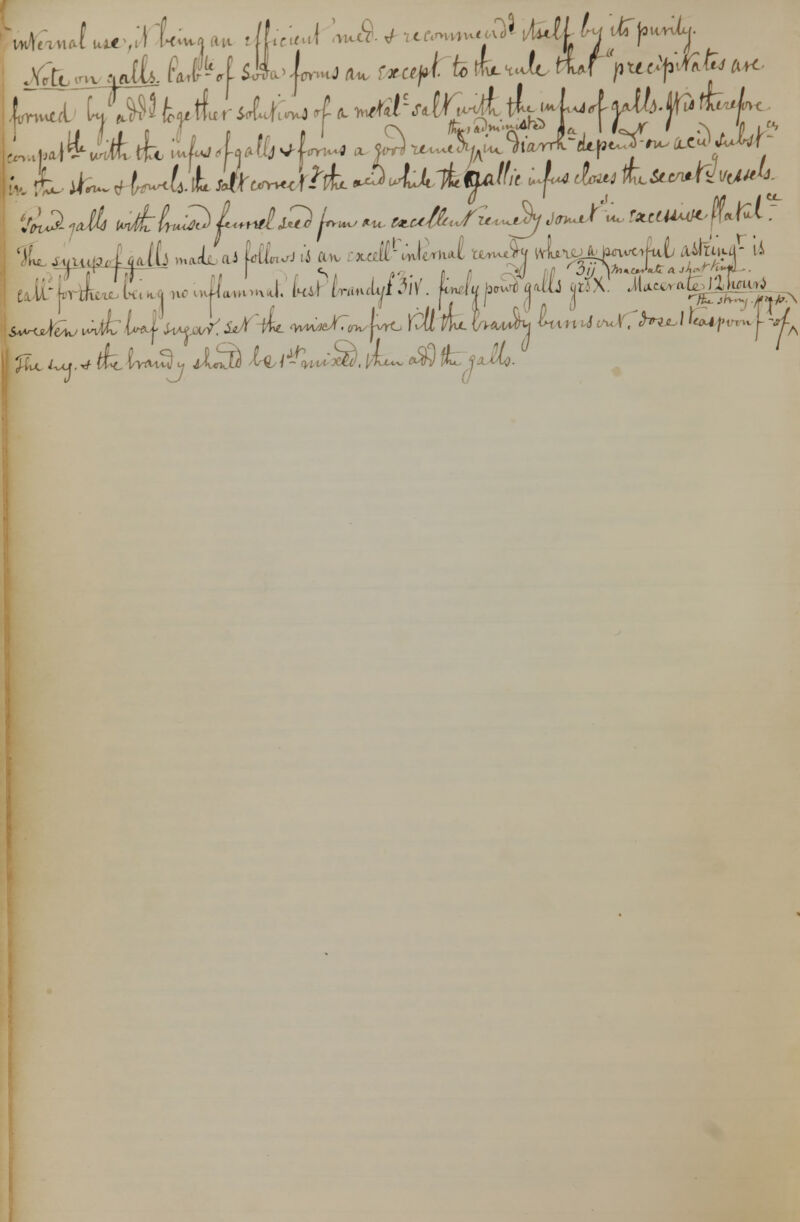 internal use, it being an efficient med. & recommend.g itself by its purity.
Note on galls. Carb.te of Soda forms an except. to the rule that "precipitates are
formed by add.g together solutions of a metal.c salt with the infus of galls. It is therefore
compat.le with the infus of galls & forms a good remedy in Diarrh.a depend.g on acid subst.ces
they administd
in the stom. & bowels. the salt correct.g the acid while the gallic infus closes the secret.g vessels.
Powd. galls with bruised fennel seed form an excellent remedy somet.s in excessive flatul.ce
The syrup of galls made as follows is an excell.t internal remedy where a powerful astring.t is
call.d for there being no inflammat. best brandy f ℥iv. finely powd galls grs X. Macerate 12 hours
℥ij macerate a short time.
sweeten with loaf sugar. Set the mixt. on fire till the brandy burns out. dose 1 teaspoonf. of
the strong prep.
The sug. & the brandy should be 1st mixed, then add the galls.